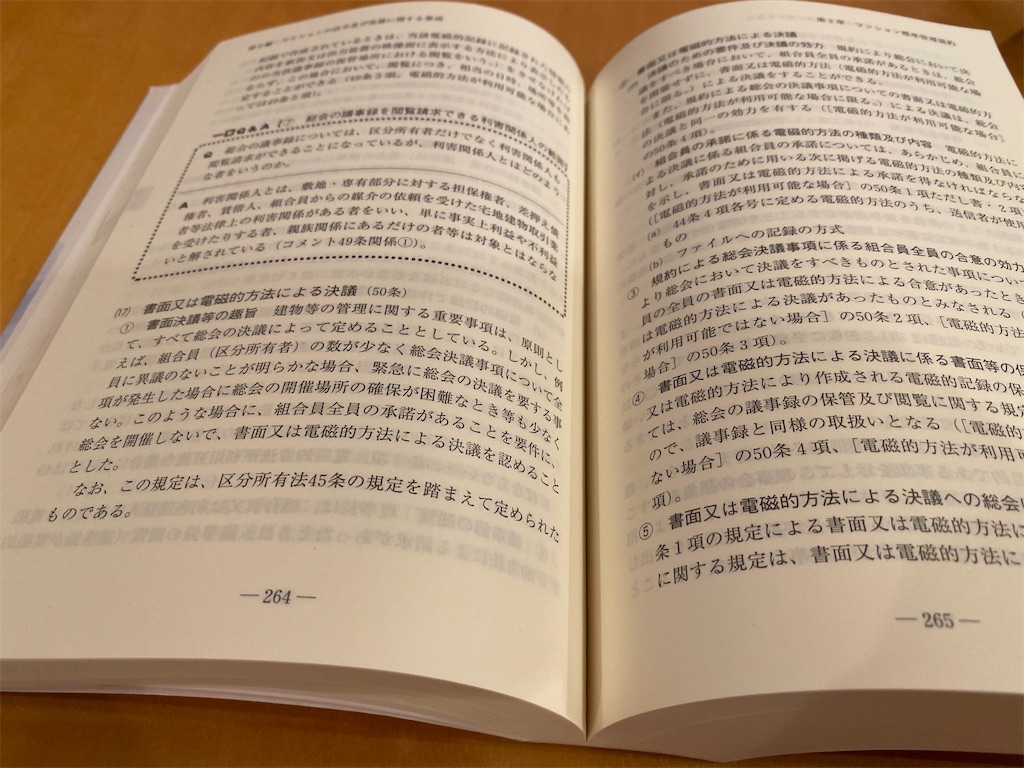 記録で作成されているときは、当該電磁的記録に記録された情報の
ては49条3項)。
Q&A ⑦ 総会の議事録を閲覧請求できる利害関係人の範囲
Q 総会の議事録については、区分所有者だけでなく利害関係人も
閲覧請求ができることになっているが、利害関係人とはどのよう
な者をいうのか。
A 利害関係人とは、敷地・専有部分に対する担保権者、差押え債
権者、賃借人、組合員からの媒介の依頼を受けた宅地建物取引業
者等法律上の利害関係がある者をいい、単に事実上利益や不利益
を受けたりする者、親族関係にあるだけの者等は対象とはならな
いと解されている(コメント49条関係①)。
⒄ 書面又は電磁的方法による決議(50条)
① 書面決議等の趣旨 建物等の管理に関する重要事項は、原則とし
て、すべて総会の決議によって定めることとしている。しかし、例
えば、組合員(区分所有者)の数が少なく総会決議事項について全
員に異議のないことが明らかな場合、緊急に総会の決議を要する事
項が発生した場合に総会の開催場所の確保が困難なとき等も少なく
ない。このような場合に、組合員全員の承諾があることを要件に、
総会を開催しないで、書面又は電磁的方法による決議を認めること
とした。
なお、この規定は、区分所有法45条の規定を踏まえて定められた
ものである。
―264―
書面又は電磁的方法による決議
決議のための要件及び決議の効力 規約により総会において決
議をすべき場合において、組合員全員の承諾があるときは、総会
を開催せずに、書面又は電磁的方法(電磁的方法が利用可能な場
合に限る。)による決議をすることができる。
また、規約による総会の決議事項についての書面又は電磁的方
法(電磁的方法が利用可能な場合に限る。)による決議は、総会
の決議と同一の効力を有する([電磁的方法が利用可能な場合]
の50条4項)。
(イ) 組合員の承諾に係る電磁的方法の種類及び内容 電磁的方法に
よる決議に係る組合員の承諾については、あらかじめ、組合員に
対し、承諾のために用いる次に掲げる電磁的方法の種類及び内容
を示し、書面又は電磁的方法による承諾を得なければならな
([電磁的方法が利用可能な場合]の50条1項ただし書・2項
(a) 44条4項各号に定める電磁的方法のうち、送信者が使用
もの
(b) ファイルへの記録の方式
③ 規約による総会決議事項に係る組合員全員の合意の効力
より総会において決議をすべきものとされた事項につい
員の全員の書面又は電磁的方法による合意があったとき
は電磁的方法による決議があったものとみなされる(
が利用可能ではない場合]の50条2項、[電磁的方法
場合]の50条3項)。
④ 書面又は電磁的方法による決議に係る書面等の保
又は電磁的方法により作成される電磁的記録の保
ては、総会の議事録の保管及び閲覧に関する規定
ので、議事録と同様の取扱いとなる([電磁的
ない場合]の50条4項、[電磁的方法が利用
項)。
⑤ 書面又は電磁的方法による決議への総会
条1項の規定による書面又は電磁的方法に
に関する規定は、書面又は電磁的方法に
―265―